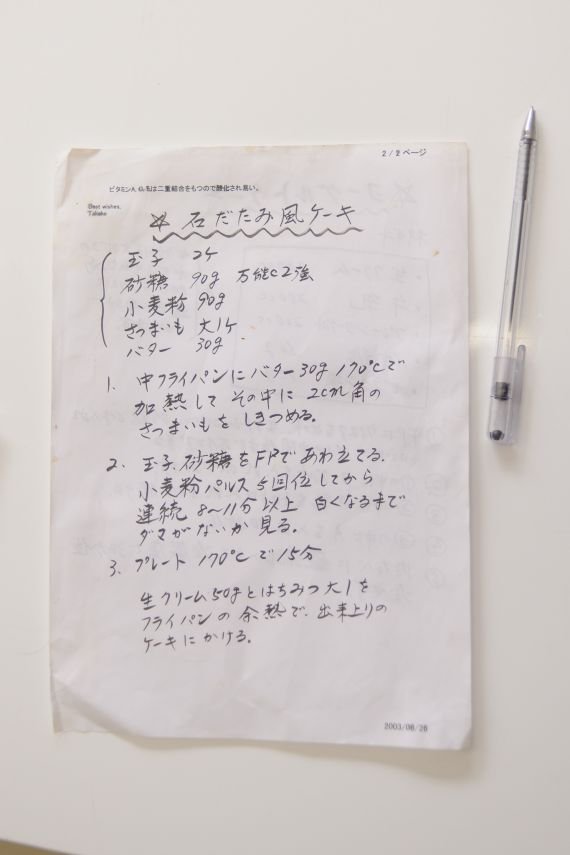 2/2ページ
ビタミンA, D, Eは二重結合をもつので酸化され易い。
Best wishes,
Takako
☆ 石だたみ風ケーキ
玉子 2ケ
砂糖 90g 万能C2強
小麦粉 90g
さつまいも 大1ケ
バター 30g
1. 中フライパンにバター30g 170℃で
加熱して その中に 2cm角の
さつまいもを しきつめる。
2. 玉子、砂糖をFPであわ立てる。
小麦粉パルス5回位してから
連続 8〜11分以上 白くなるまで
ダマがないか見る。
3. プレート 170℃で15分
生クリーム50gとはちみつ大1を
フライパンの余熱で、出来上りの
ケーキにかける。
2003/06/26